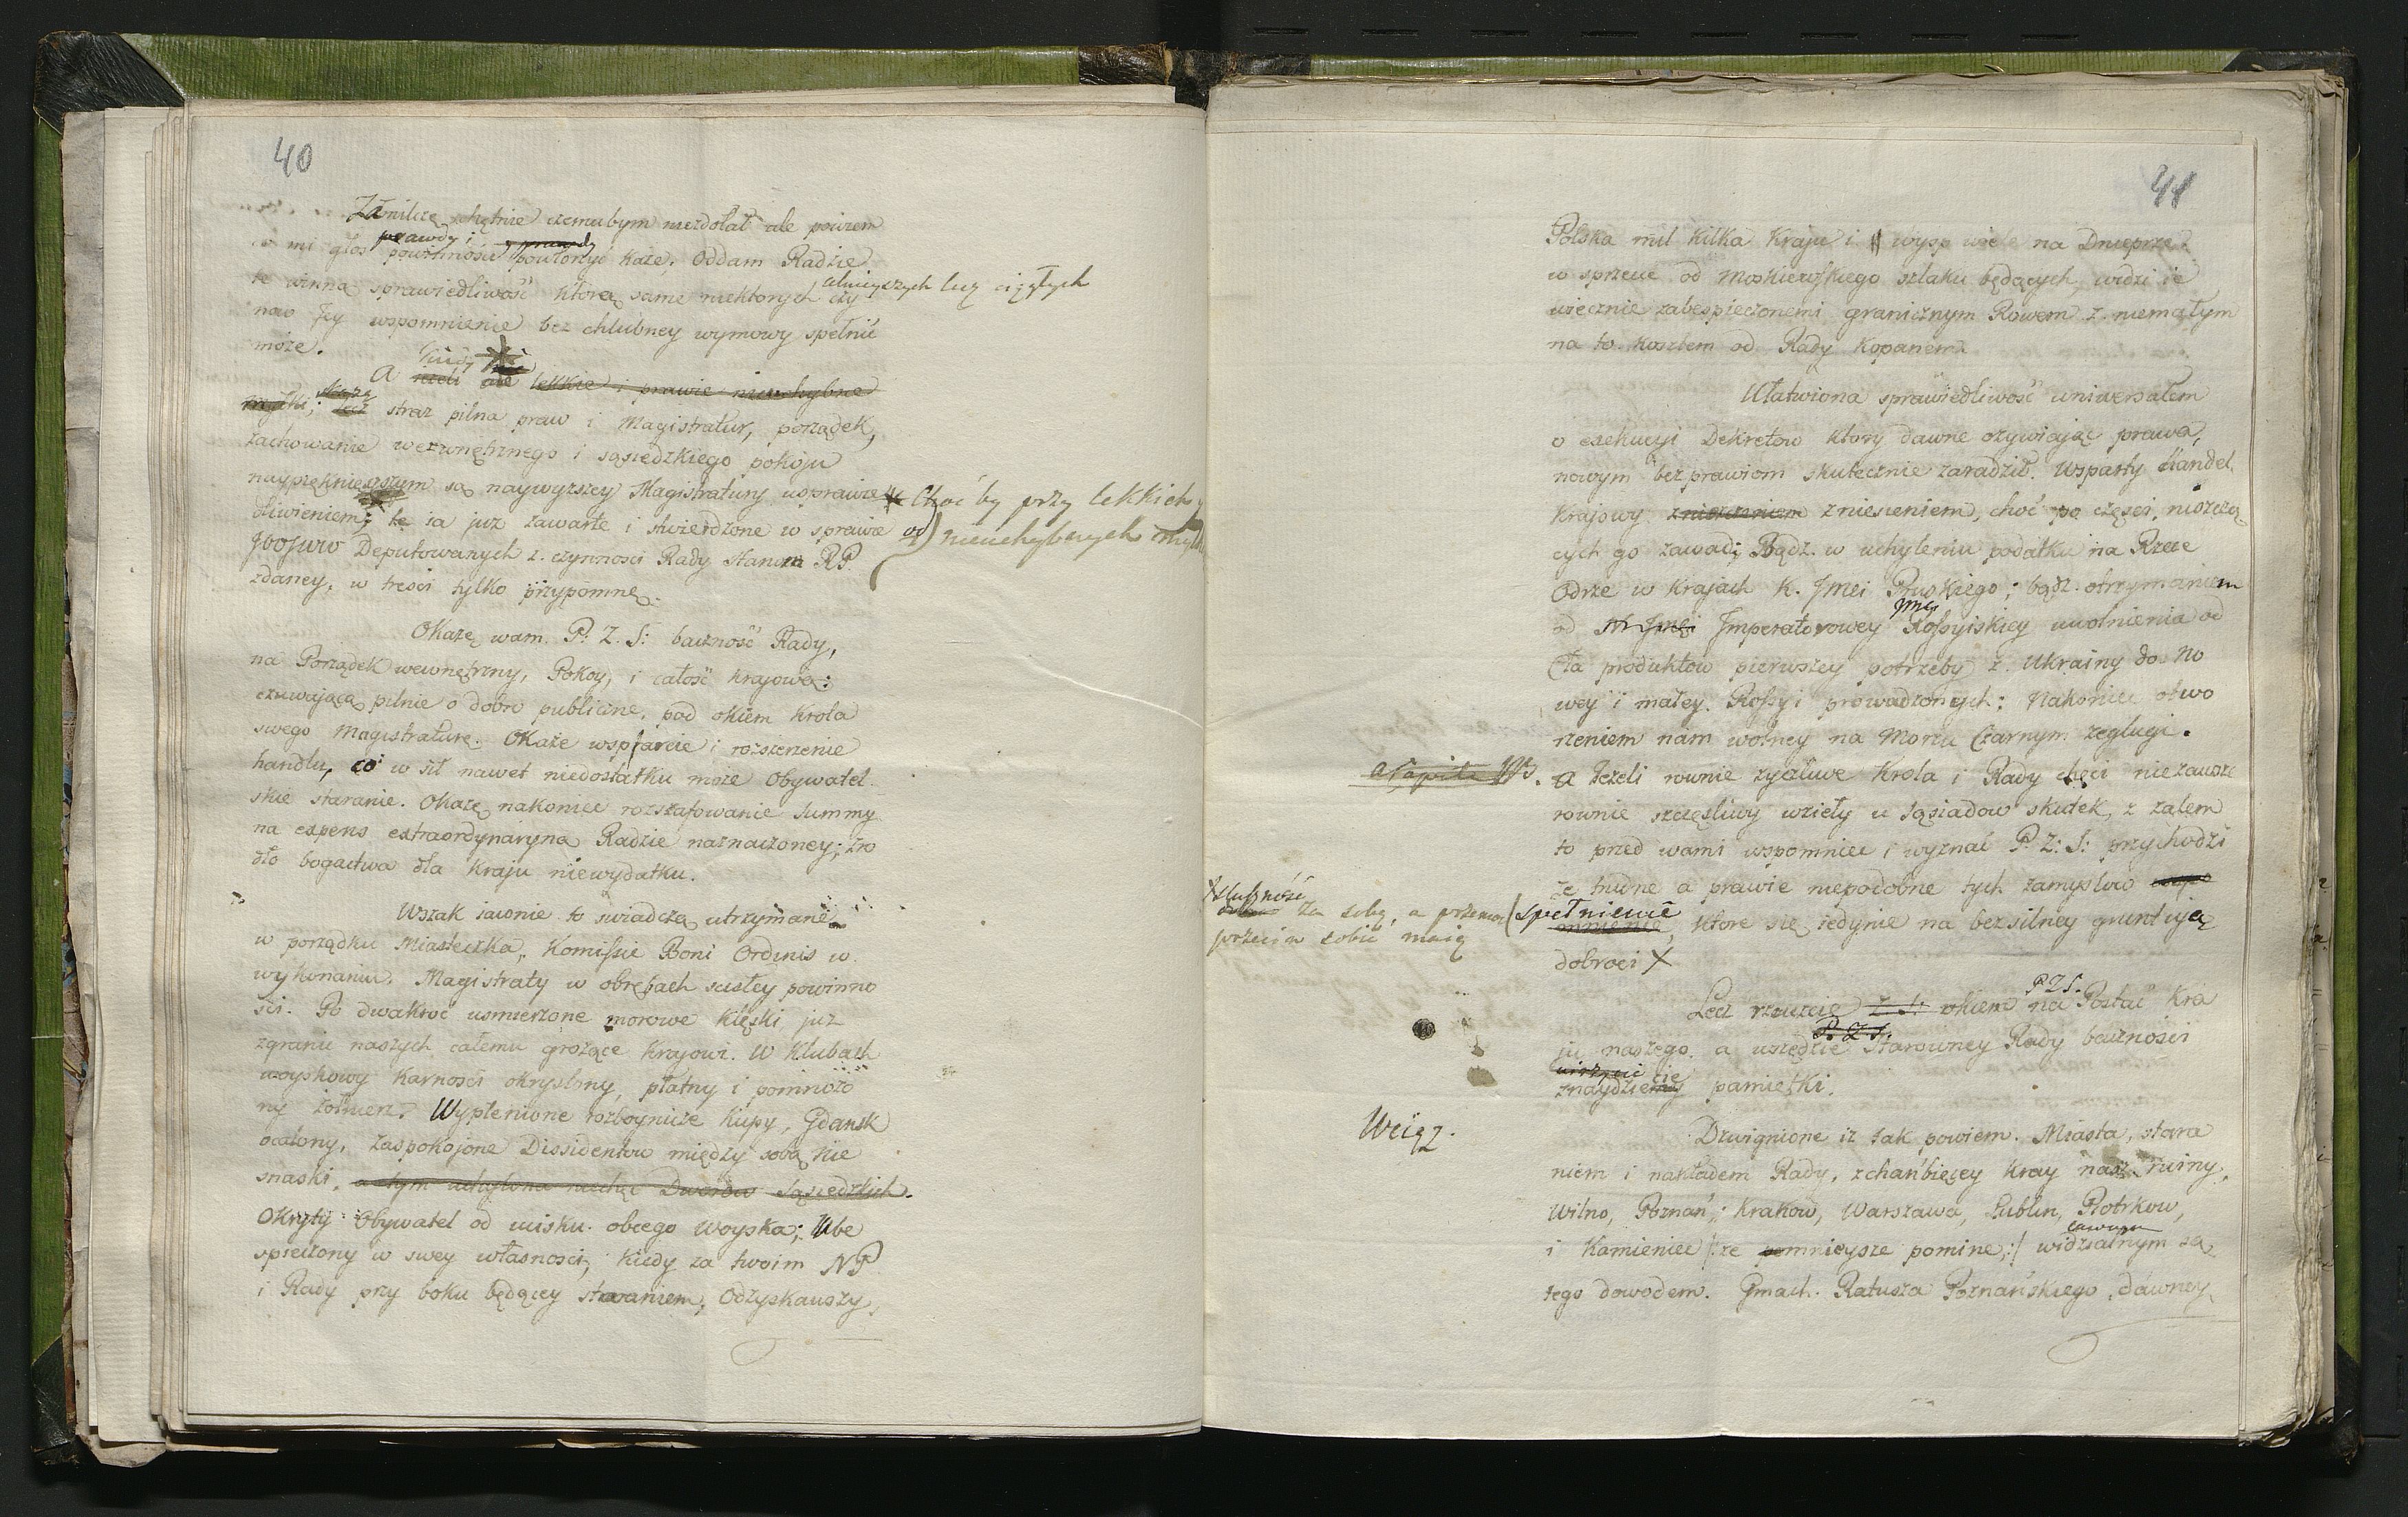 40
Zamilczę chętnie czemubym niezdołał ale powiem
co mi głos prawdy i powinności położyć każe. Oddam Radzie
tę winną sprawiedliwość którą same niektorych celnieyszych lub ciągłych czy
now Jey wspomnienie bez chlubney wymowy spełnić
może.
A lekkie i prawie nieuchybne
myłki; straż pilna praw i Magistratur, porządek,
zachowanie wewnętrznego i sąsiedzkiego pokoju
naypięknieyszym są naywyższey Magistratury usprawie
dliwieniem; te ia już zawarte i stwierdzone w sprawie
JWJPanow Deputowanych z czynności Rady Stanu RP.
zdaney, w treści tylko przypomnę.
* Choć by przy lekkich
nieuchybnych
Okażę wam P: Z. S: baczność Rady,
na Porządek wewnętrzny, Pokoy, i całość krajową:
czuwającą pilnie o dobro publiczne, pod okiem Krola
swego Magistraturę. Okaże wsparcie i rozszerzenie
handlu, co w sił nawet niedostatku może Obywatel
skie staranie. Okażę nakoniec rozszafowanie Summy
na expens extraordynaryina Radzie naznaczoney; zro
dło bogactwa dla Kraju niewydatku.
Wszak jawnie to swiadczą utrzymane
w porządku Miasteczka, Komissie Boni Ordinis w
wykonaniu. Magistraty w obrębach scisłey powinno
ści. Po dwakroć usmierzone morowe klęski już
zgranic naszych całemu grożące Krajowi. W Klubach
woyskowy Karności okryslony, płatny i pomnożo
ny żołnierz. Wyplenione rozboynicze kupy, Gdansk
ocalony, Zaspokojone Dissidentow między sobą nie
snaski, a tym uchylona niechęć Dworow Sąsiedzkich.
Okryty Obywatel od ucisku obcego Woyska; Ube
spieczony w swey własności, kiedy za twoim NP
i Rady przy boku będącey staraniem, Odzyskawszy
41
Polska mil kilka Kraju i wysp wiele na Dnieprze
w sprzecie od Moskiewskiego szlaku będących, widzi ie
wiecznie zabespieczonemi granicznym Rowem z niemałym
na to kosztem od Rady Kopanem.
Ułatwiona sprawiedliwość uniwersałem
o exekucyi Dekretow ktory dawne ożywiając prawa,
nowym bezprawiom skutecznie zaradził. Wsparty Handel
Krajowy zniesieniem, choć po części, niszczą
cych go zawad; Bądz w uchyleniu podatku na Rzece
Odrze w Krajach K. Jmci Pruskiego; bądz otrzymaniem
od Jmperatorowey Jmci Rossyiskiey uwolnienia od
Cła produktow pierwszey potrzeby z Ukrainy do No
wey i małey Rossyi prowadzonych: Nakoniec otwo
rzeniem nam wolney na Morzu Czarnym żeglugi.
a Jeżeli rownie życzliwe Krola i Rady chęci niezawsze
rownie szczęśliwy wzięły u Sąsiadow skutek, z żalem
to przed wami wspomniec i wyznać P: Z: S: przychodzi
że trudne a prawie niepodobne tych zamysłow
spełnienie, ktore się jedynie na bezsilney gruntują
dobroci X
X słuszność za sobą, a przemoc
przeciw sobie maią
Lecz rzucicie Z. S: okiem na P Z S. Postać Kra
ju naszego, a wszędzie P. Z S. Starowney Rady baczności
znaydziecie pamiątki.
Wciąz.
Dzwignione iz tak powiem Miasta, stara
niem i nakładem Rady, zchańbiącey Kray nasz ruiny,
Wilno, Poznań, Krakow, Warszawa, Lublin, Piotrkow,
i Kamieniec /:że pomnieysze pominę:/ widzialnym są
tego dowodem. Gmach Ratusza Poznańskiego, dawney